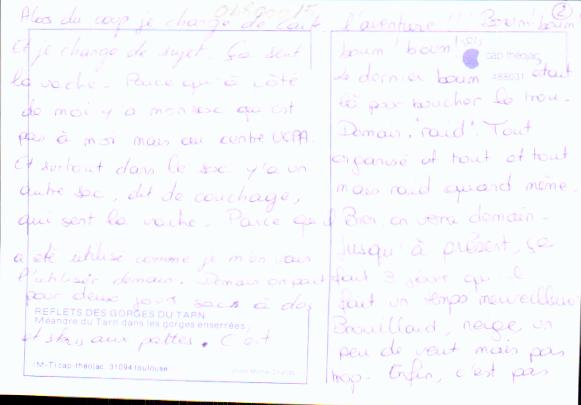 Alors du coup je change de carte
Et je change de sujet. Ça sent
la vache. Parce qu'à côté
de moi y a mon sac qui est
pas à moi mais au centre UCPA.
Et surtout dans le sac y'a un
autre sac, dit de couchage,
qui sent la vache. Parce qu'il
a été utilisé comme je m'en vais
l'utiliser demain. Demain on part
pour deux jours sac à dos
REFLETS DES GORGES DU TARN
Méandre du Tarn dans les gorges enserrées
et skis aux pattes. C'est
M-T cap-théojac. 31094 toulouse
2
l'aventure !! Boum! boum!
boum! boum!
cap-théojac
Le dernier boum était
là pour boucher le trou.
Demain, "raid". Tout
organisé et tout et tout
mais raid quand même.
Bien, on verra demain.
Jusqu'à présent, ça
fait 3 jours qu'il
fait un temps merveilleux
Brouillard, neige un
peu de vent mais pas
trop. Enfin, c'est pas